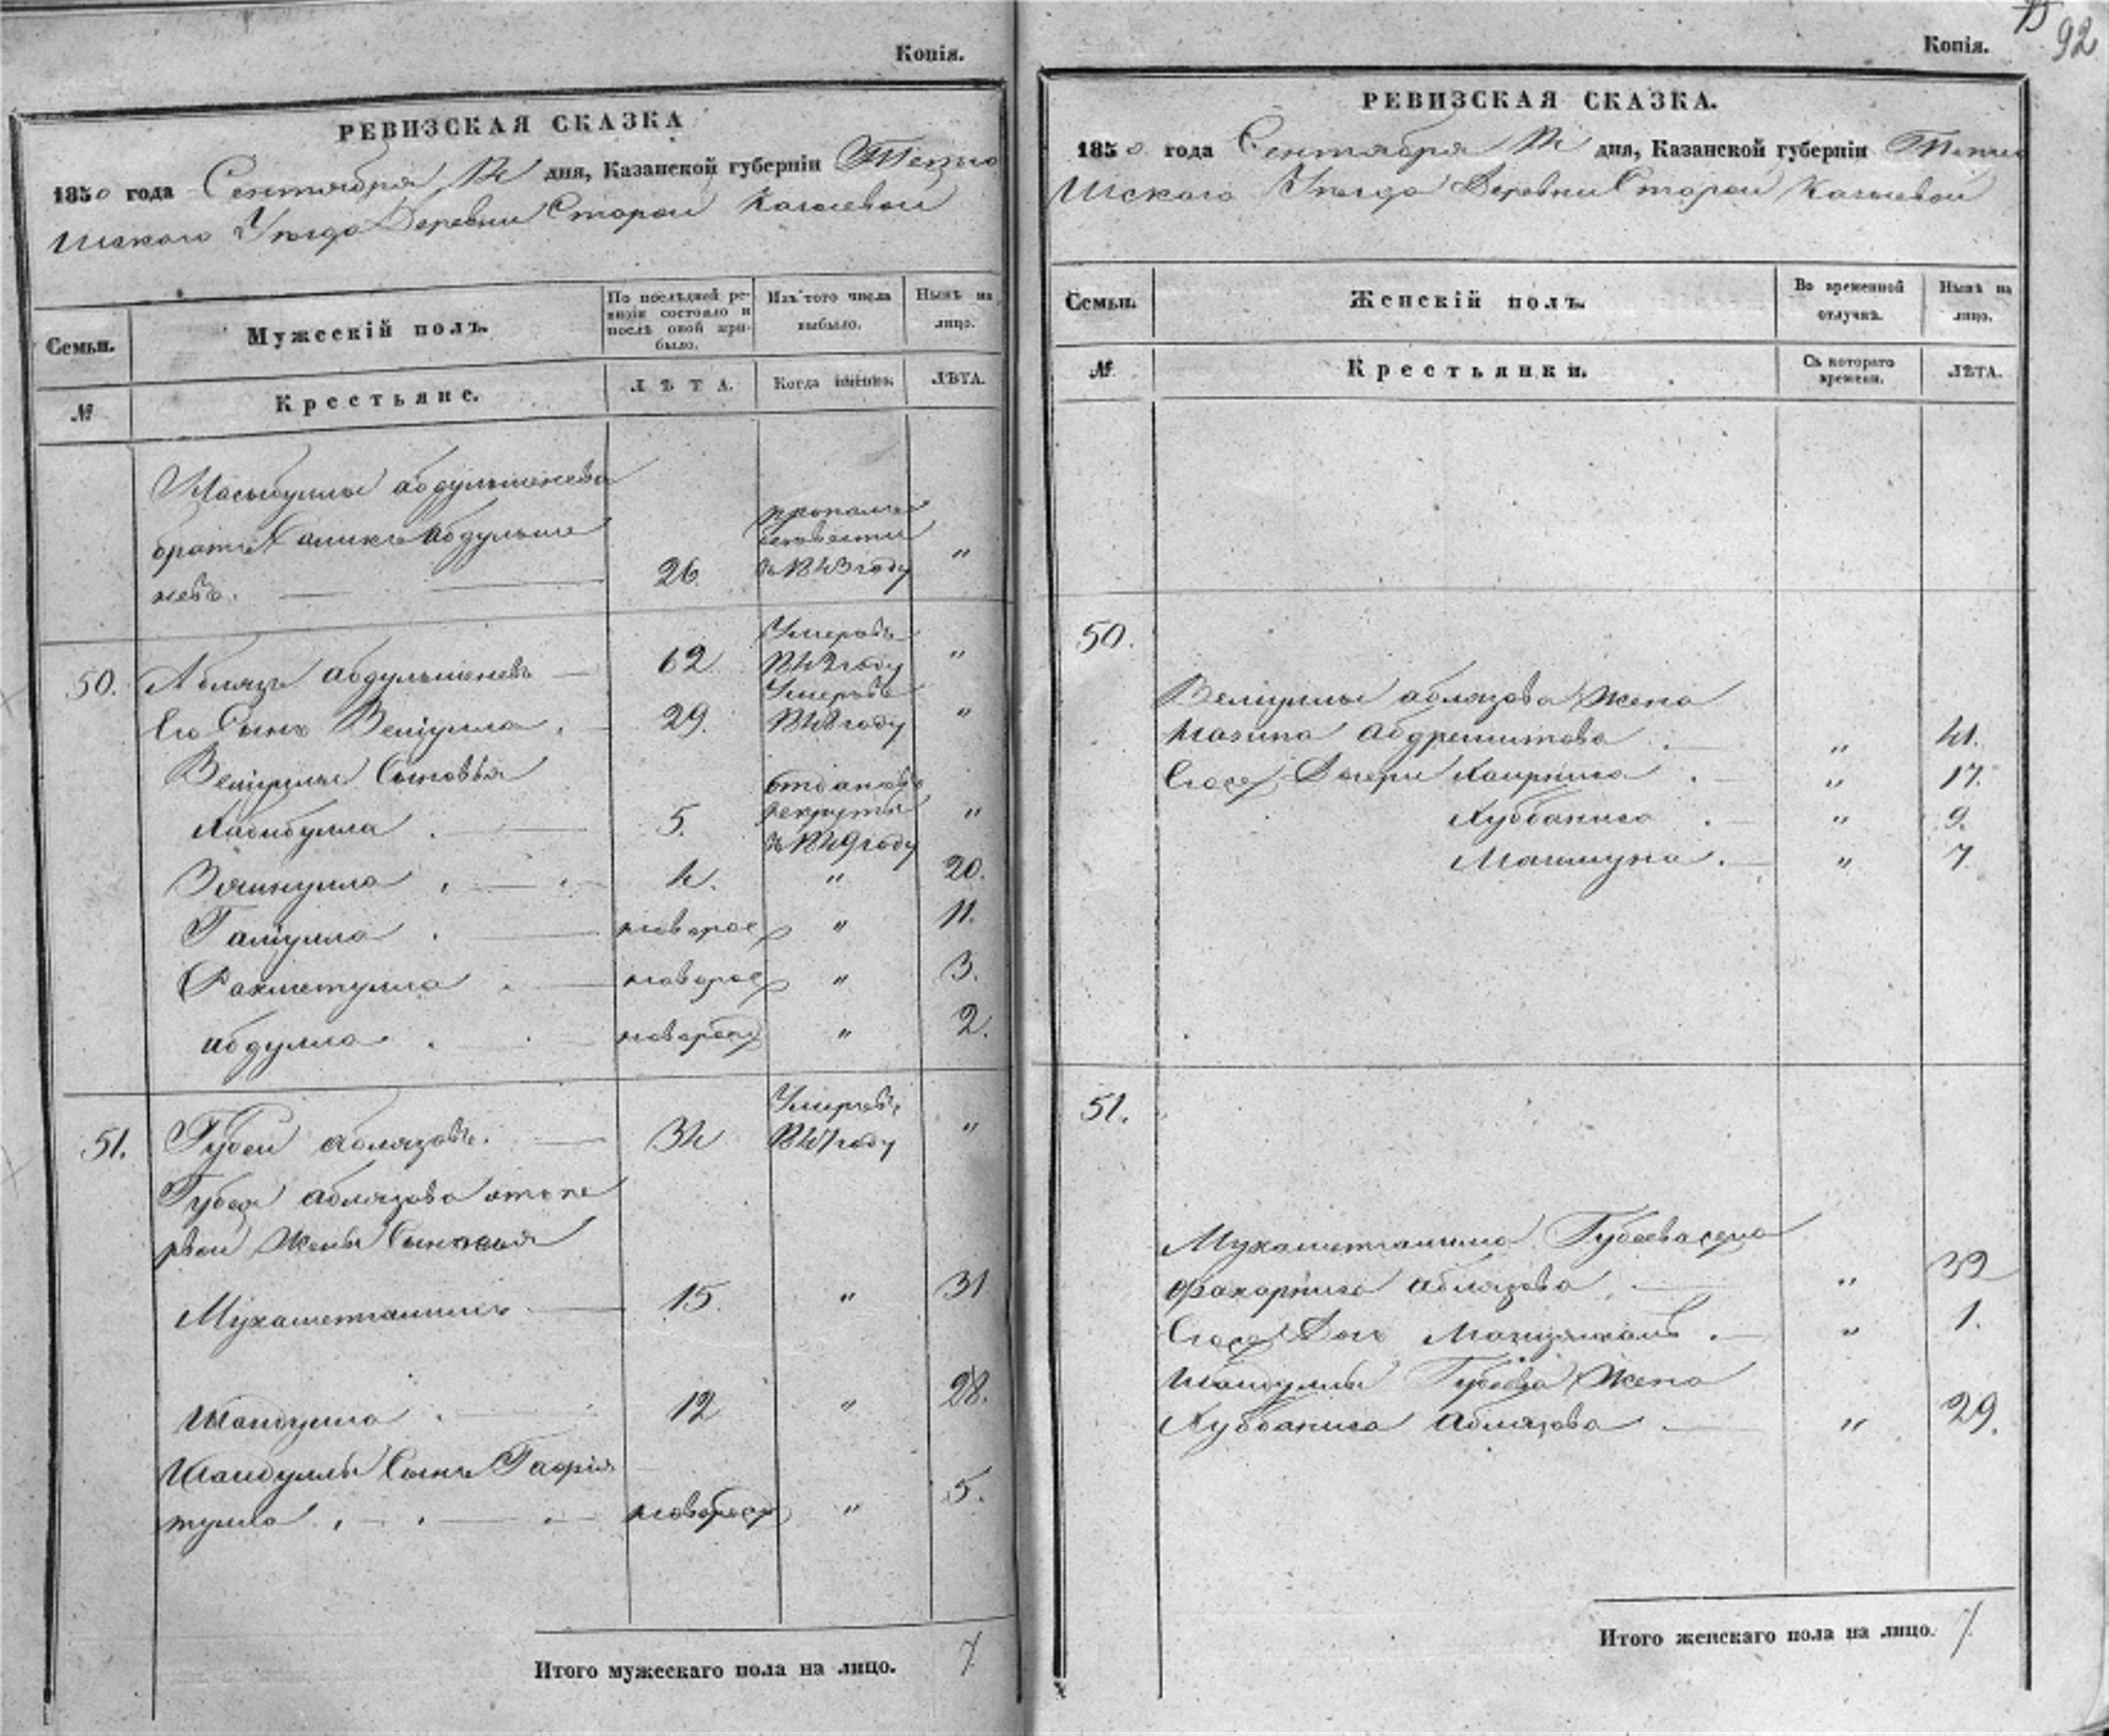 Копія.
РЕВИЗСКАЯ СКАЗКА
1850 года Сентября дня, Казанской губерніи Тетю
шскаго Уезда Деревни Старой
Семьи.
Мужескій полъ.
По послѣдней ре-
визіи состояло и
послѣ оной при-
было.
Изъ того числа
выбыло.
Нынѣ на
лицо.
№
Крестьяне.
ЛѢТА.
Когда именно.
ЛѢТА.
братъ Халикъ Абдульме
невъ. 26. пропалъ безвести въ 1843 году "
50. Аблязъ Абдульменевъ 62 Умеръ въ 1842 году "
Его Сынъ Велiулла 29. Умеръ въ 1848 году "
Велiуллы Сыновья
Хабибулла 5. отданъ въ рекруты въ 1849 году "
4. " 20.
Галiулла новорож " 11.
Рахметулла новорож " 3.
Абдулла новорож " 2.
51. Губей Аблязовъ. 34 Умеръ въ 1847 году "
Губея Аблязова отъ пе
рвой Жены Сыновья
Мухаметгалимъ 15. " 31
Шагидулла 12 " 28.
Шагидуллы Сынъ Гафiя
тулла новорож " 5.
Итого мужескаго пола на лицо. 7
92
Копія.
РЕВИЗСКАЯ СКАЗКА.
1850 года Сентября дня, Казанской губерніи Тетю
шскаго Уезда Деревни Старой
Семьи.
Женскій полъ.
Во временной
отлучкѣ.
Нынѣ на
лицо.
№
Крестьянки.
Съ котораго
времени.
ЛѢТА.
50.
Велiуллы Аблязова Жена
Абдрешитова " 41.
Ея Дочери " 17.
Хуббаниса " 9.
Маймуна " 7
51.
Мухаметгалима Губеева жена
Фахарниса Аблязова " 39
Ея Дочь " 1.
Шагидуллы Губеева Жена
Хуббаниса Аблязова " 29.
Итого женскаго пола на лицо. 7